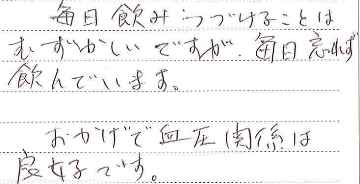 毎日飲みつづけることは
むずかしいですが、毎日忘れず
飲んでいます。
おかげで血圧関係は
良好です。